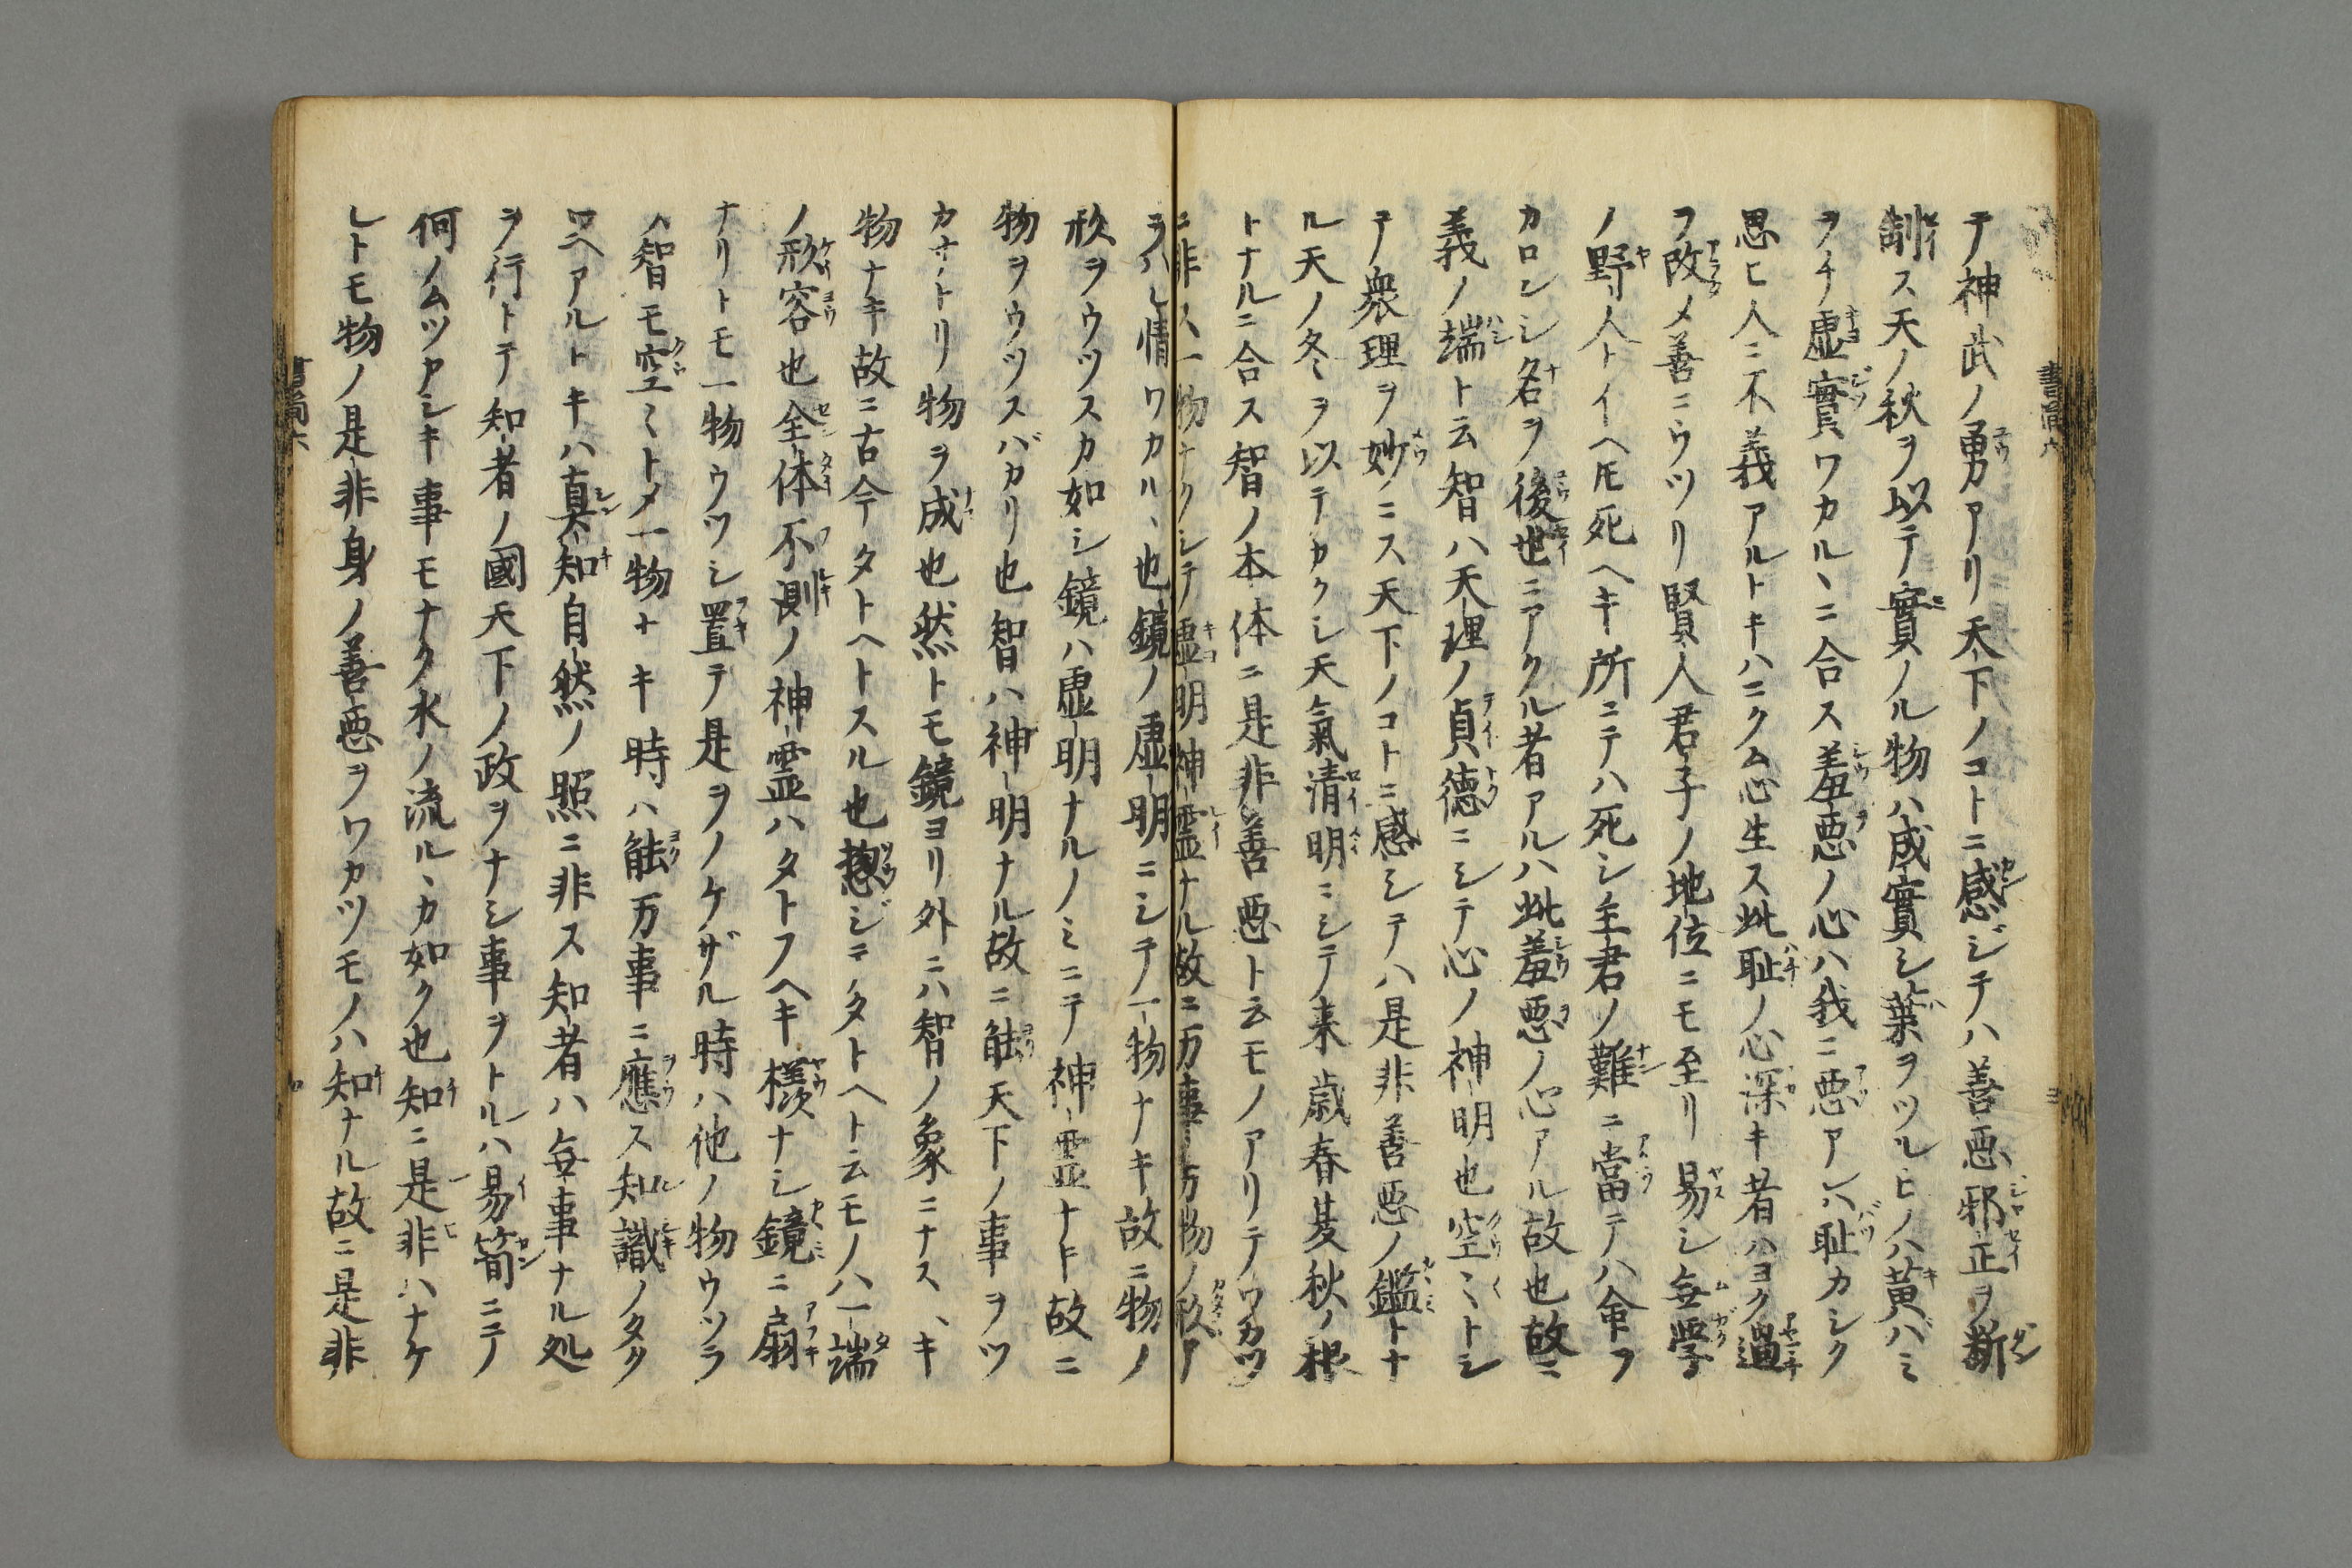 テ神武ノ勇アリ天下ノコトニ感ジテハ善悪邪正ヲ断
制ス天ノ秋ヲ以テ實ノル物ハ成實シ葉ヲツルヒノハ黄バミ
ヲチ虚實ワカルヽニ合ス羞悪ノ心ハ我ニ悪アレハ恥カシク
思ヒ人ニ不義アルトキハニクム心生ス此恥ノ心深キ者ハヨク過
ヲ改メ善ニウツリ賢人君子ノ地位ニモ至リ易シ無学
ノ野人トイヘ𪜈死ヘキ所ニテハ死シ主君ノ難ニ當テハ命ヲ
カロンシ名ヲ後世ニアクル者アルハ此羞悪ノ心アル故也故ニ
義ノ端ト云智ハ天理ノ貞徳ニシテ心ノ神明也空〻トシ
テ衆理ヲ妙ニス天下ノコトニ感シテハ是非善悪ノ鑑トナ
ル天ノ冬ヲ以テカクシ天氣清明ニシテ来歳春夏秋ノ根
トナルニ合ス智ノ本体ニ是非善悪ト云モノアリテワカツ
ニ非ス一物ナクシテ虚明神霊ナル故ニ万事万物ノ形ア
ラハレ情ワカルヽ也鏡ノ虚明ニシテ一物ナキ故ニ物ノ
形ヲウツスカ如シ鏡ハ虚明ナルノミニテ神霊ナキ故ニ
物ヲウツスバカリ也智ハ神明ナル故ニ能天下ノ事ヲツ
カサトリ物ヲ成也然トモ鏡ヨリ外ニハ智ノ象ニナスヽキ
物ナキ故ニ古今タトヘトスル也惣ジテタトヘト云モノハ一端
ノ形容也全体不測ノ神霊ハタトフヘキ樣ナシ鏡ニ扇
ナリトモ一物ウツシ置テ是ヲノケザル時ハ他ノ物ウツラ
ス智モ空〻トメ一物ナキ時ハ能万事ニ應ス知識ノタク
ワヘアルトキハ真知自然ノ照ニ非ス知者ハ無事ナル処
ヲ行トテ知者ノ國天下ノ政ヲナシ事ヲトルハ易簡ニテ
何ノムツカシキ事モナク水ノ流ルヽカ如ク也知ニ是非ハナケ
レトモ物ノ是非身ノ善悪ヲワカツモノハ知ナル故ニ是非